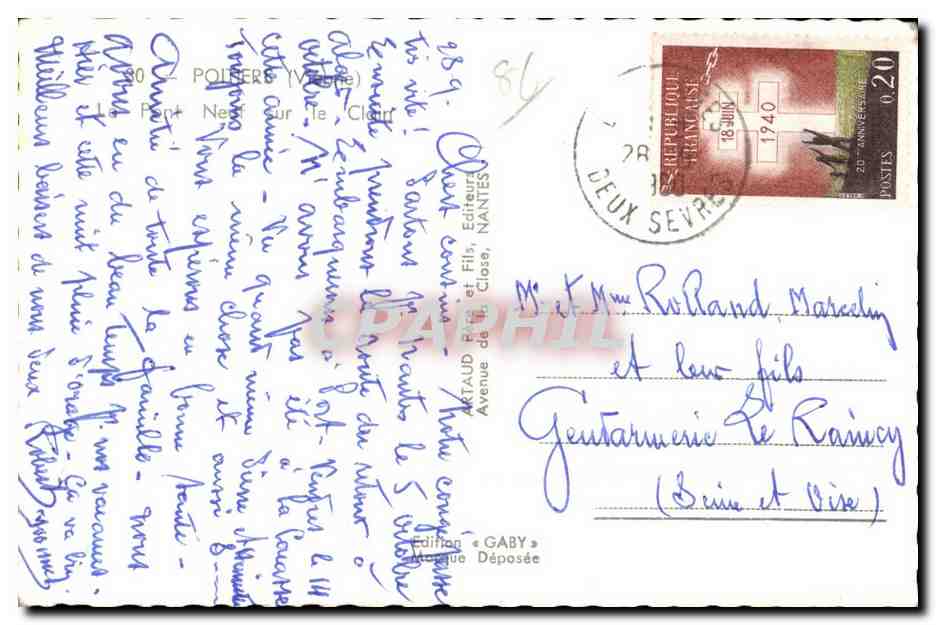 80 - POITIERS (Vienne)
Le Pont Neuf sur le Clain
86
28.9. Chers cousins - Notre congé passe
très vite! Partons Nantes le 5 octobre
Ensuite prendrons la route du retour à
Alger. Embarquerons à Port-Vendres le 14
octobre - N'avons pas été à la Courasse
cette année - Vu quand même
Toujours la même chose et aussi
Vous espérons en bonne santé -
Amitié de toute la famille - nous
avons eu du beau temps. Ns nos vacances
et cette nuit pluie d'orage - Ça va bien
Meilleurs baisers de nous deux
Robert
ARTAUD Père et Fils, Editeurs
Avenue de la Close, NANTES
Edition « GABY »
Marque Déposée
CPAPHIL
28
DEUX SEVRES
REPUBLIQUE
FRANCAISE
18 JUIN
1940
20me ANNIVERSAIRE
POSTES
0,20
Mr et Mme Rolland, Marcelin
et leur fils
Gendarmerie Le Raincy
(Seine et Oise)